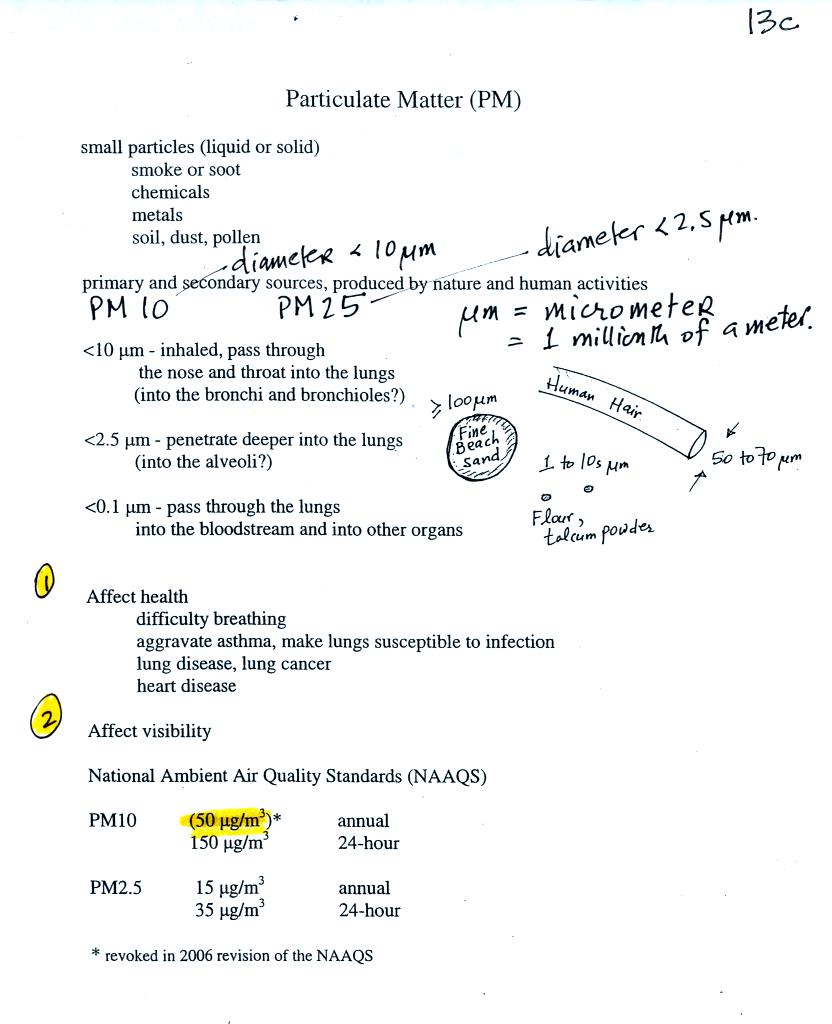 13c
Particulate Matter (PM)
small particles (liquid or solid)
smoke or soot
chemicals
metals
soil, dust, pollen
diameter < 10 µm
diameter < 2.5 µm.
primary and secondary sources, produced by nature and human activities
PM 10
PM 25
µm = micrometer
= 1 millionth of a meter.
<10 µm - inhaled, pass through
the nose and throat into the lungs
(into the bronchi and bronchioles?)
≥ 100 µm
Fine
Beach
sand
Human Hair
50 to 70 µm
<2.5 µm - penetrate deeper into the lungs
(into the alveoli?)
1 to 10s µm
Flour,
talcum powder
<0.1 µm - pass through the lungs
into the bloodstream and into other organs
1
Affect health
difficulty breathing
aggravate asthma, make lungs susceptible to infection
lung disease, lung cancer
heart disease
2
Affect visibility
National Ambient Air Quality Standards (NAAQS)
PM10 (50 µg/m³)* annual
150 µg/m³ 24-hour
PM2.5 15 µg/m³ annual
35 µg/m³ 24-hour
* revoked in 2006 revision of the NAAQS